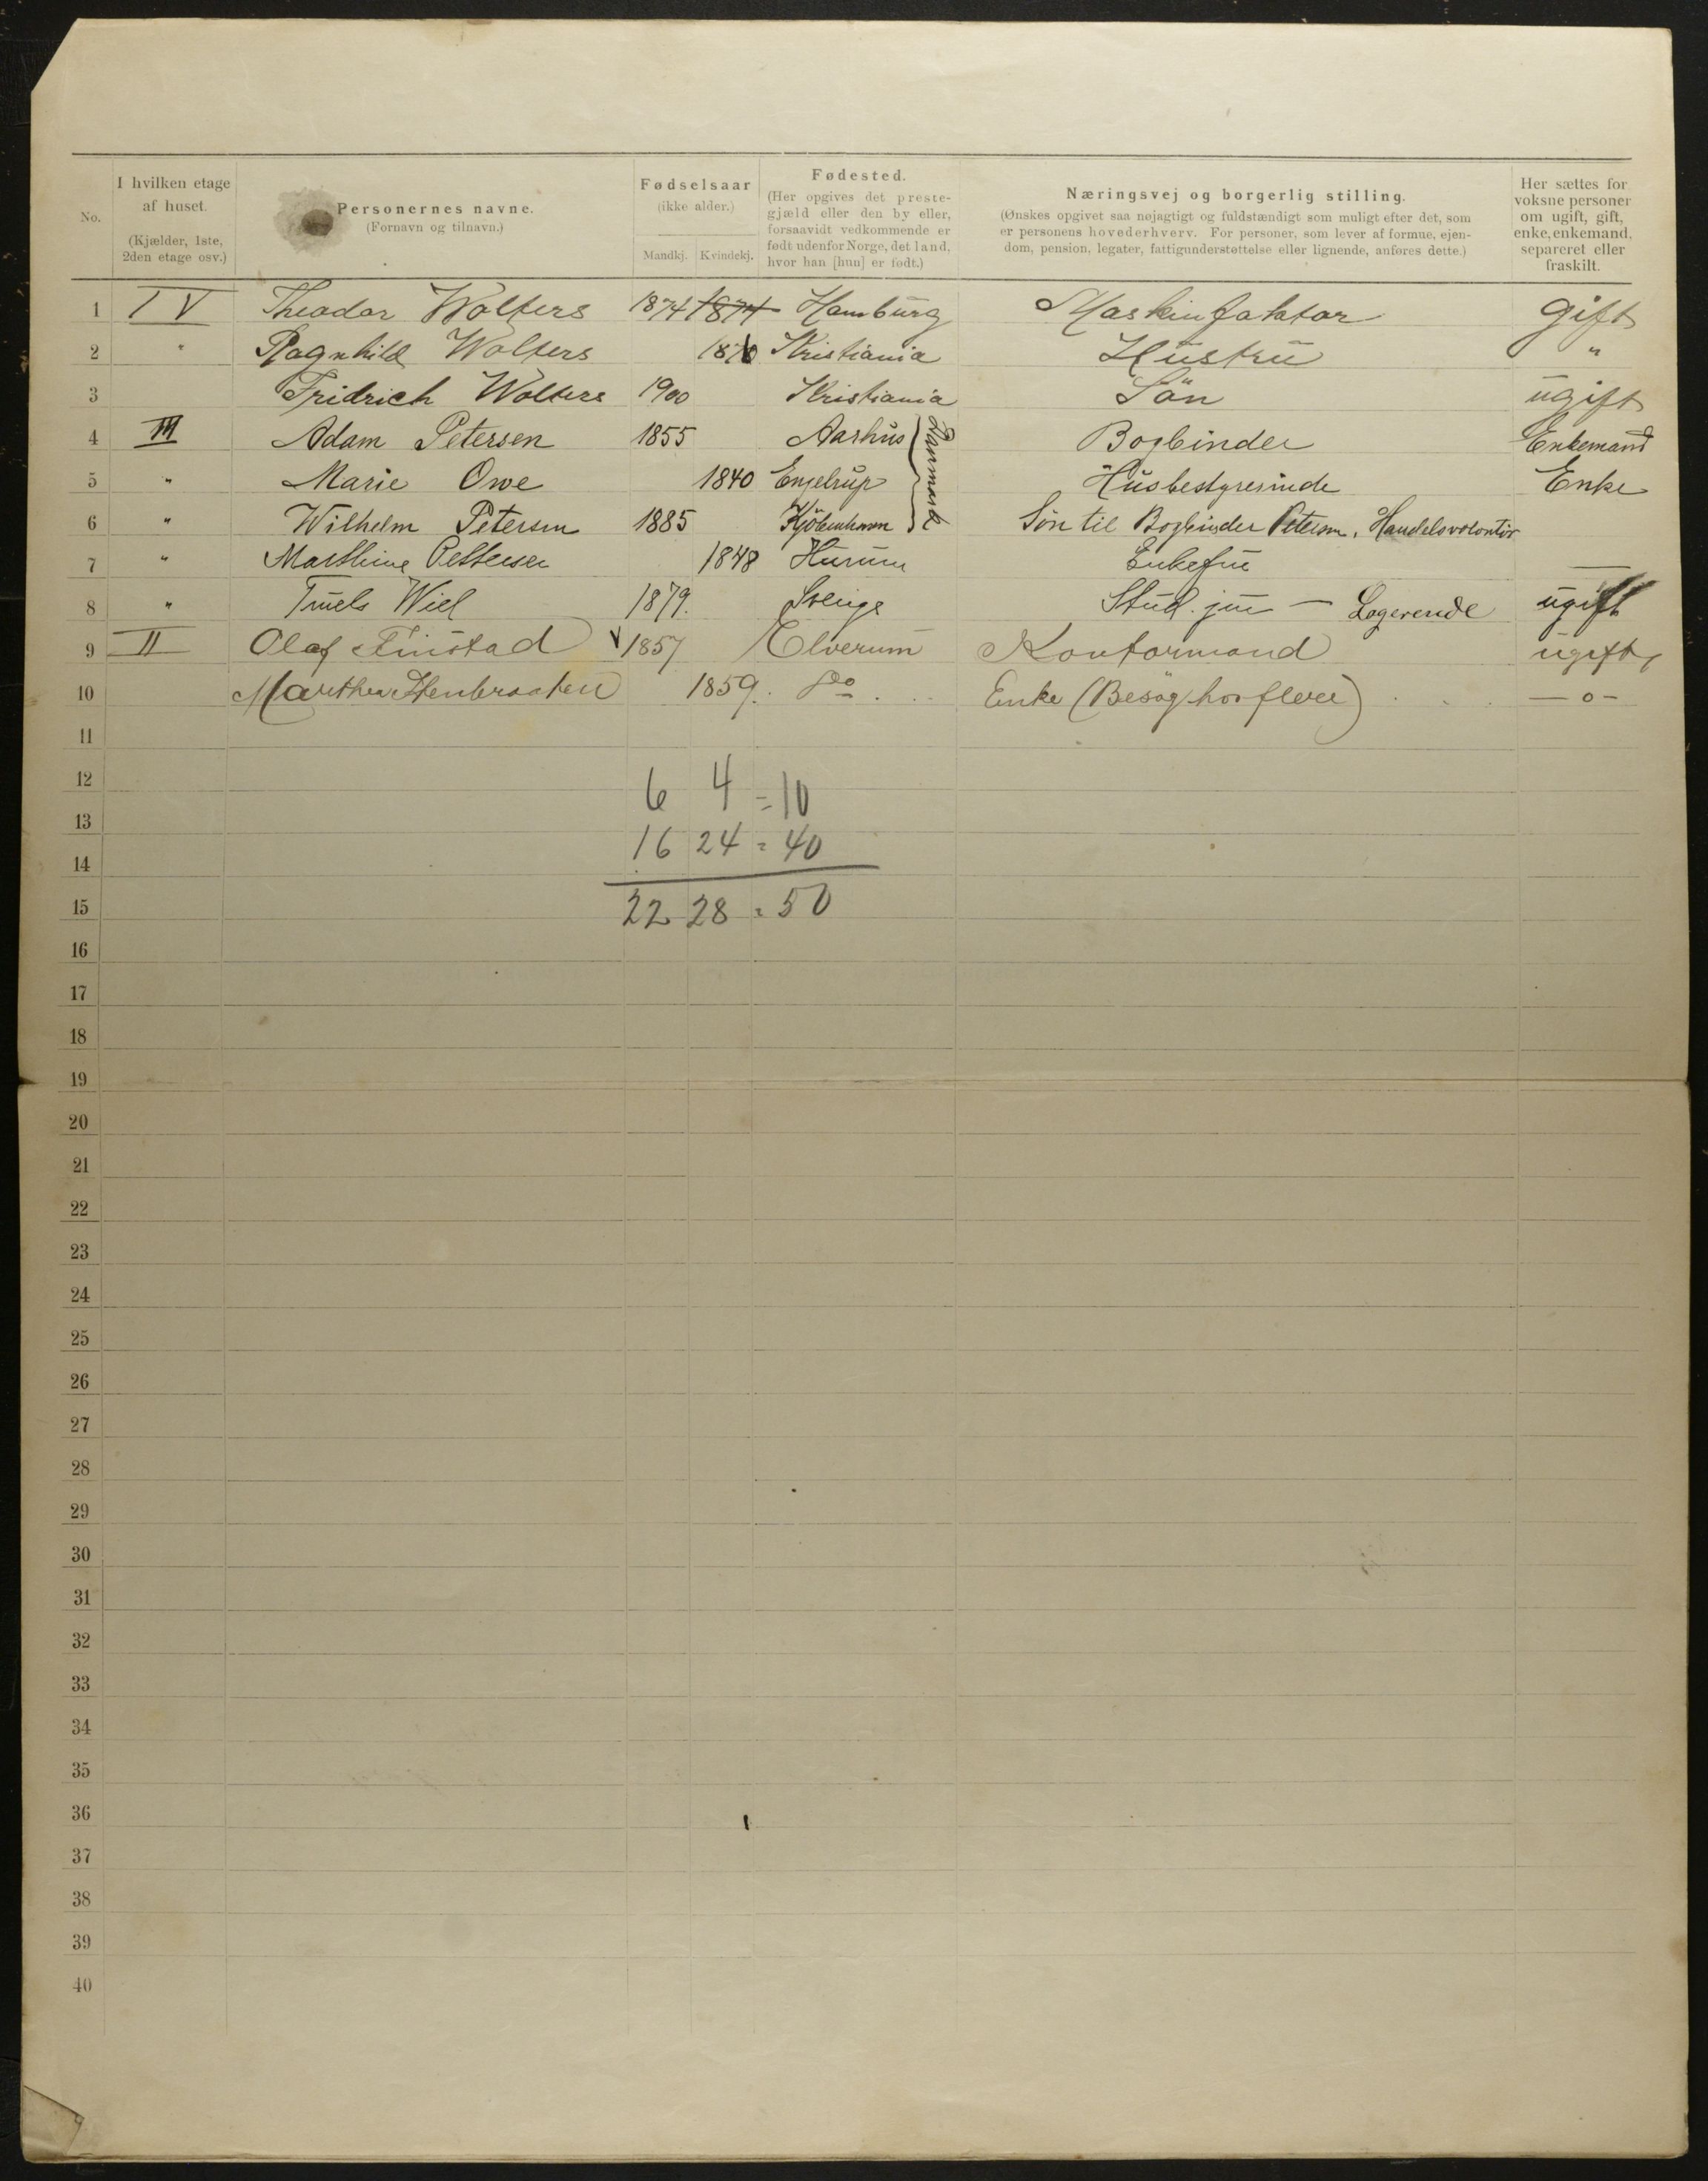 No.
I hvilken etage af huset. (Kjælder, 1ste, 2den etage osv.)
Personernes navne. (Fornavn og tilnavn.)
Fødselsaar (ikke alder.) Mandkj. Kvindekj.
Fødested. (Her opgives det prestegjæld eller den by eller, forsaavidt vedkommende er født udenfor Norge, det land, hvor han [hun] er født.)
Næringsvej og borgerlig stilling. (Ønskes opgivet saa nøjagtigt og fuldstændigt som muligt efter det, som er personens hovederhverv. For personer, som lever af formue, ejendom, pension, legater, fattigunderstøttelse eller lignende, anføres dette.)
Her sættes for voksne personer om ugift, gift, enke, enkemand, separeret eller fraskilt.
1 IV Theodor Wolters 1874 1874 Hamburg Maskinfaktor gift
2 " Ragnhild Wolters Kristiania Hustru "
3 Fridrich Wolters 1900 Kristiania Sön ugift
4 III Adam Petersen 1855 Aarhus Danmark Bogbinder Enkemand
5 " Marie Owe 1840 Engelrup Husbestyrerinde Enke
6 " Wilhelm Petersen 1885 Kjöbenhavn Søn til Bogbinder Petersen, Handelsvolontör
7 " Marthine Pettersen 1848 Hurum Enkefru —
8 " Truels Wiel 1879. Stud. jur — Logerende ugift
9 II Olaf Finstad 1857 Elverum Kontormand ugift
10 Marthea Stenbraaten 1859. Do Enke (Besög hos flere) —o—
11
12
6 4 = 10
13
16 24 = 40
14
15
22 28 = 50
16
17
18
19
20
21
22
23
24
25
26
27
28
29
30
31
32
33
34
35
36
37
38
39
40